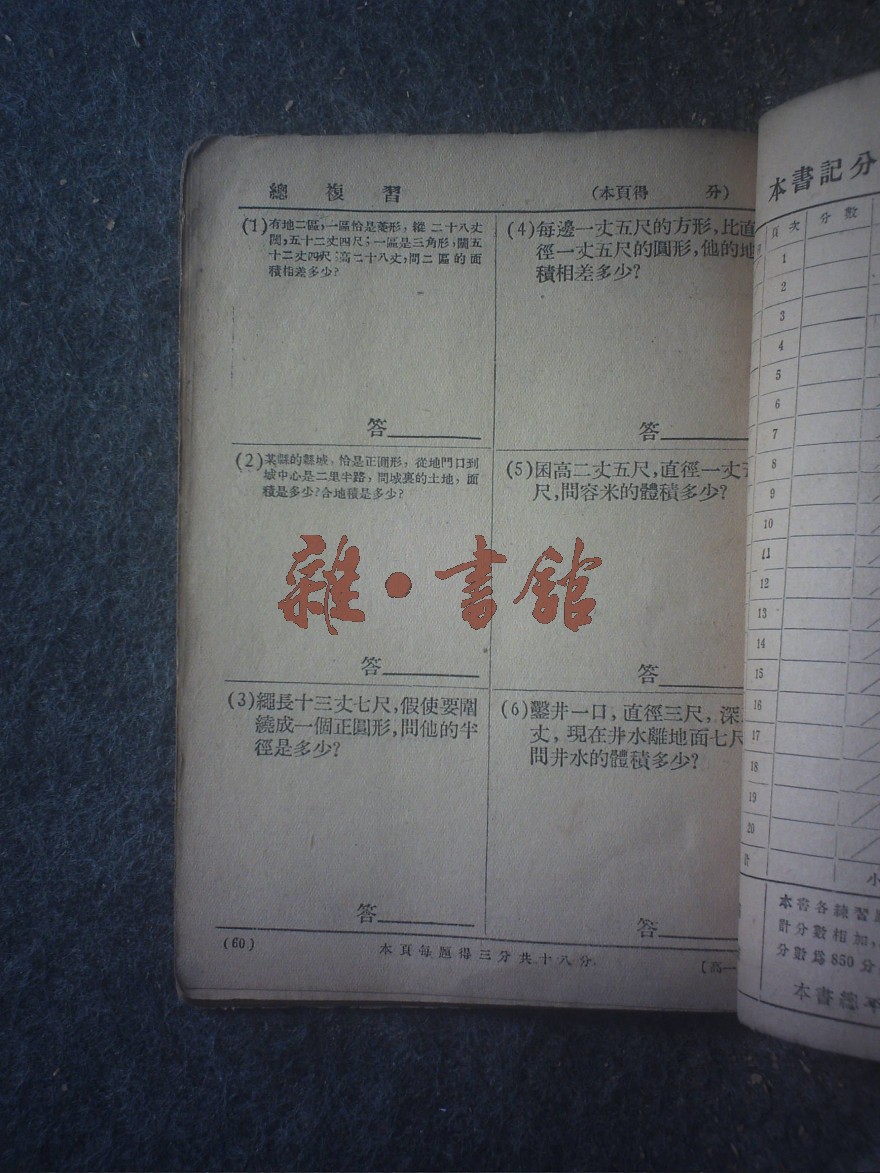 總複習
(本頁得 分)
(1)有地二區,一區恰是菱形,縱二十八丈
闊,五十二丈四尺;一區是三角形,闊五
十二丈四尺,高二十八丈,問二區的面
積相差多少?
答
(2)某縣的縣城,恰是正圓形,從地門口到
城中心是二里半路,問城裏的土地,面
積是多少?合地積是多少?
答
(3)繩長十三丈七尺,假使要圍
繞成一個正圓形,問他的半
徑是多少?
答
(4)每邊一丈五尺的方形,比直
徑一丈五尺的圓形,他的地
積相差多少?
答
(5)囷高二丈五尺,直徑一丈
尺,問容米的體積多少?
答
(6)鑿井一口,直徑三尺,深
丈,現在井水離地面七尺
問井水的體積多少?
答
(60)
本頁每題得三分共十八分
[高一
雜·書館
本書記分
頁次 分數
1
2
3
4
5
6
7
8
9
10
11
12
13
14
15
16
17
18
19
20
計
小
本書各練習
計分數相加,
分數爲850分
本書總平